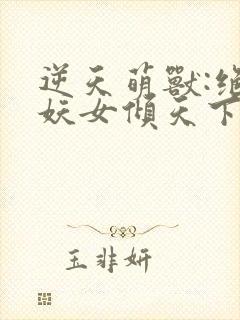 逆天萌獸:絕
妖女傾天下
玉非妍